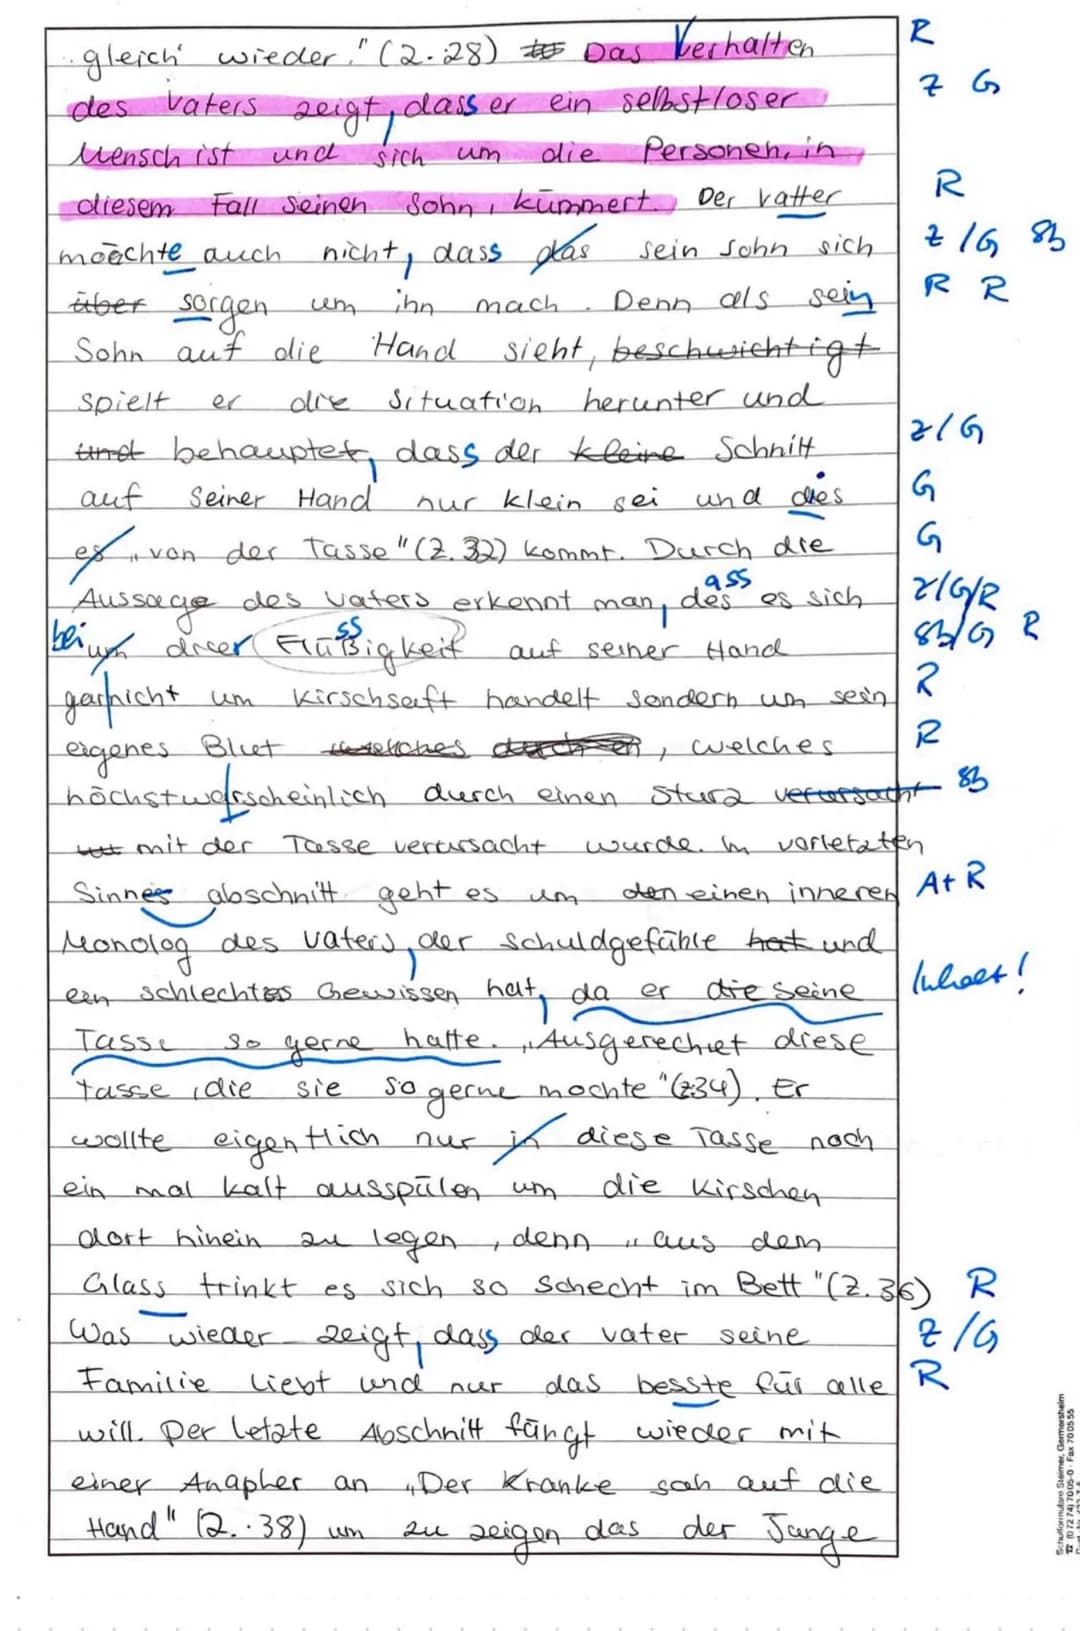 gleich wieder." (Z. 28) Das Verhalten R
des Vaters zeigt, dass er ein selbstloser Z G
Mensch ist und sich um die Personen, in
diesem Fall seinen Sohn, kümmert. Der Vatter R
möchte auch nicht, dass das sein Sohn sich Z/G Sb
über sorgen um ihn mach. Denn als sein R R
Sohn auf die Hand sieht, beschwichtigt
spielt er die Situation herunter und
und behauptet, dass der kleine Schnitt Z/G
auf seiner Hand nur klein sei und dies G
es „von der Tasse" (Z. 32) kommt. Durch die G
Aussage des Vaters erkennt man, des ass es sich Z/G/R
bei um dieer Flüßigkeit ss auf seiner Hand Sb/G R
garnicht um Kirschsaft handelt sondern um sein R
eigenes Blut welches durch, welches R
höchstwarscheinlich durch einen Sturz verursacht Sb
mit der Tasse verursacht wurde. Im vorletzten
Sinnes abschnitt geht es um den einen inneren A+R
Monolog des Vaters, der schuldgefühle hat und
ein schlechtes Gewissen hat, da er die seine Inhalt!
Tasse so gerne hatte. „Ausgerechet diese
Tasse, die sie so gerne mochte" (Z34). Er
wollte eigentlich nur in diese Tasse noch
ein mal kalt ausspülen um die Kirschen
dort hinein zu legen, denn „aus dem
Glass trinkt es sich so schecht im Bett" (Z. 36) R
Was wieder zeigt, dass der Vater seine Z/G
Familie liebt und nur das besste für alle R
will. Der letzte Abschnitt fängt wieder mit
einer Anapher an „Der Kranke sah auf die
Hand" (Z. 38) um zu zeigen das der Junge
Schulformulare Steimer, Germersheim
☎ (0 72 74) 70 05-0 · Fax 70 05 55